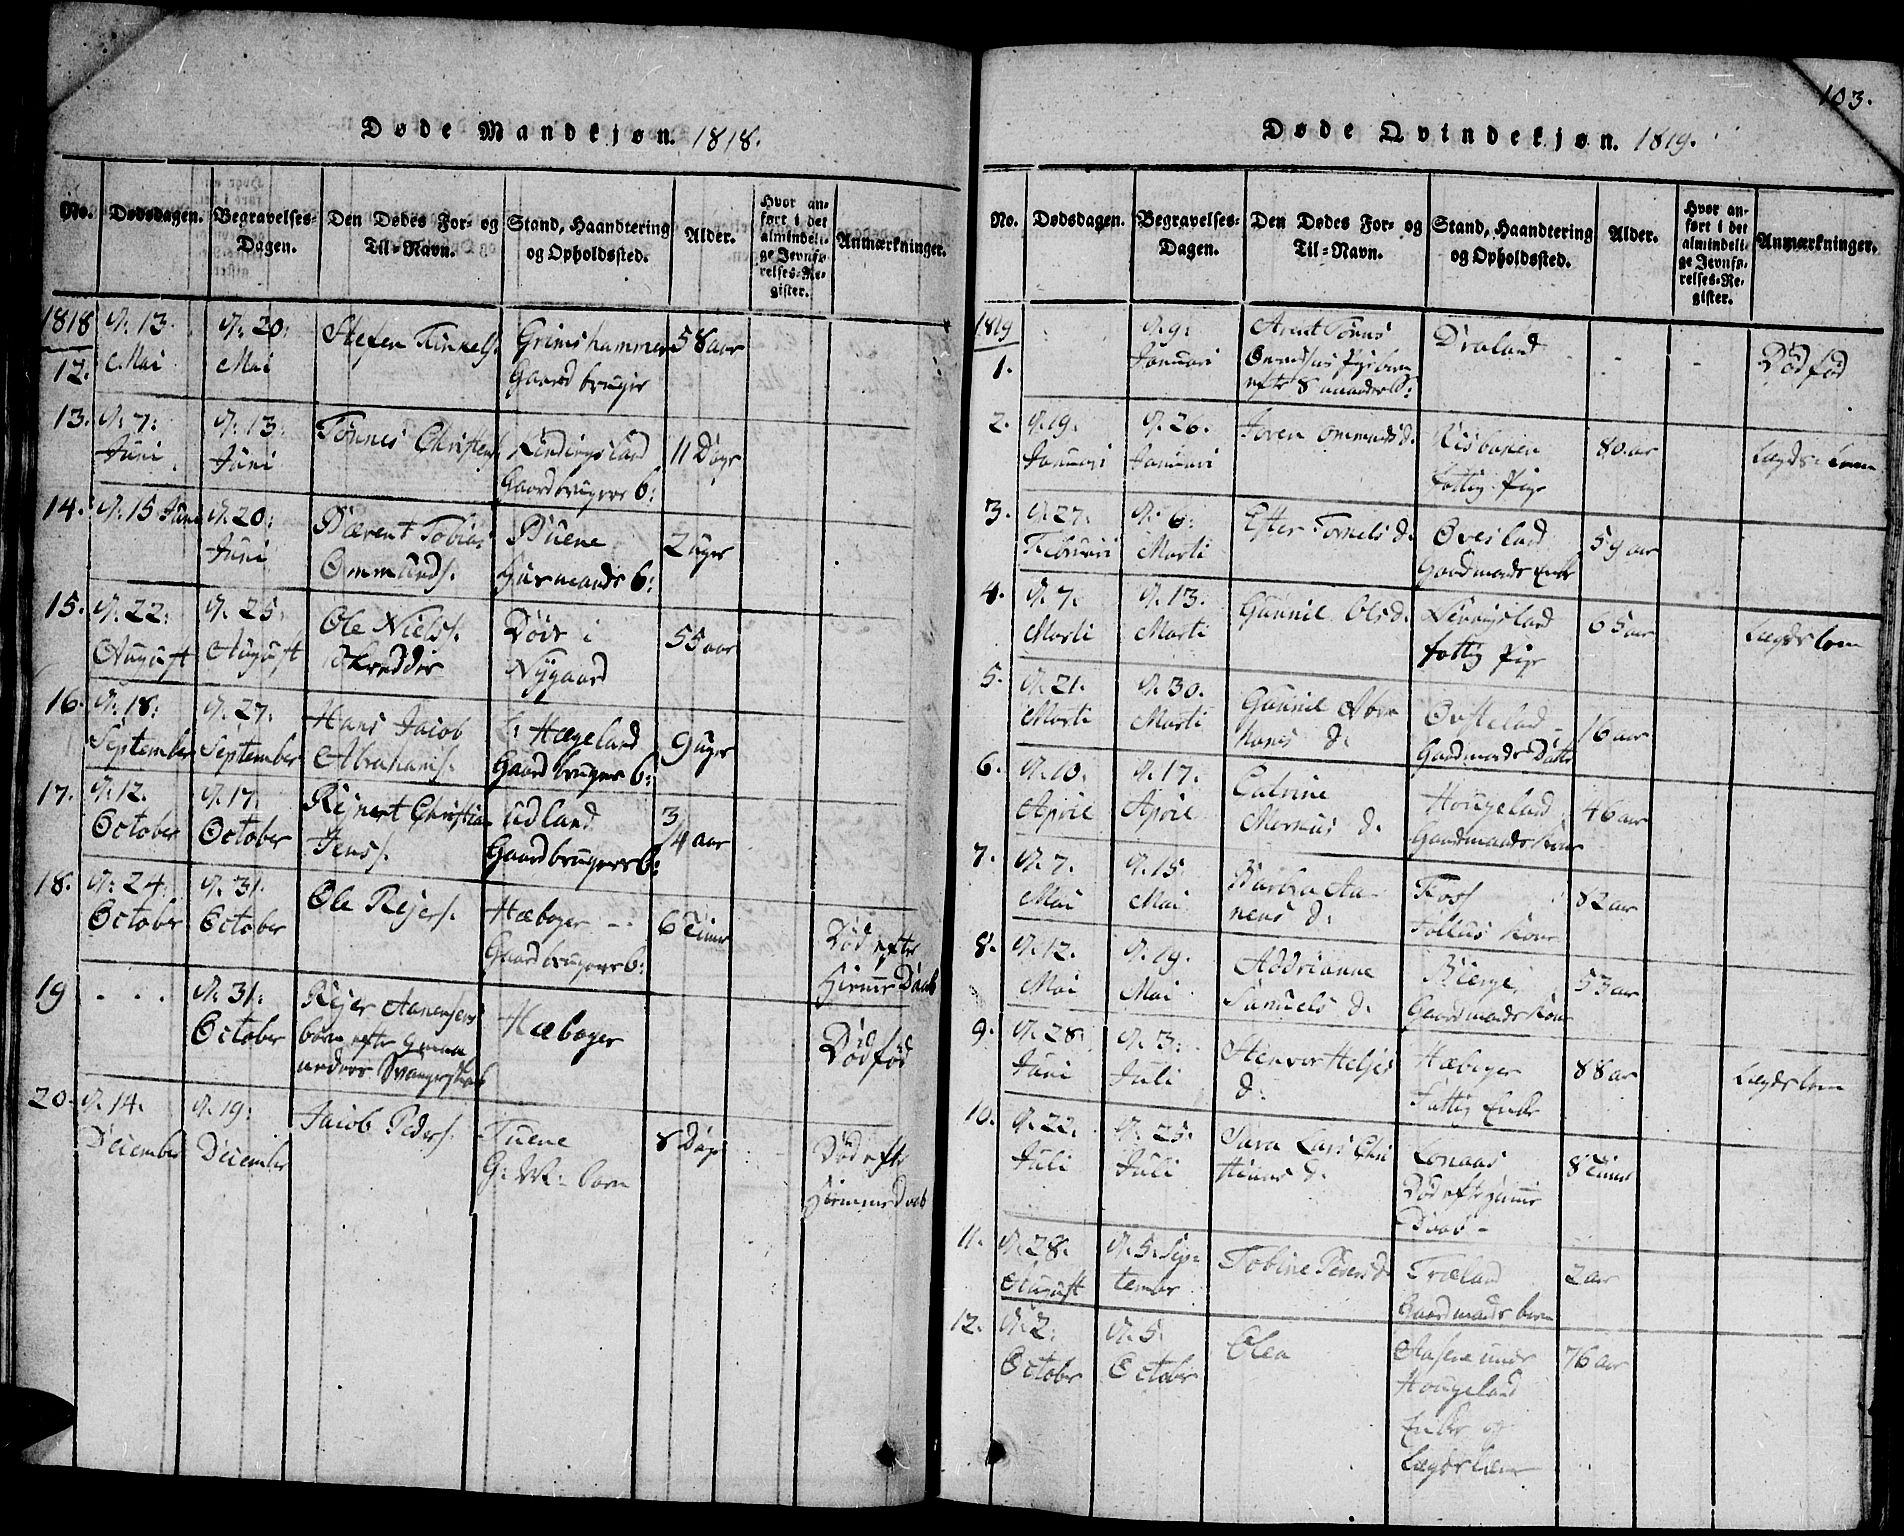 Døde Mandkjøn. 1818.
No. Dødsdagen. Begravelses-Dagen. Den Dødes For- og Til-Navn. Stand, Haandtering og Opholdssted. Alder. Hvor anført i det almindelige Jevnførelses-Register. Anmærkninger.
1818
12. d. 13. Mai d. 20: Mai Stefen Grimshammer Gaardbruger 58 aar
13. d. 7: Juni d. 13: Juni Tønnes Christens. Gaardbrugers b: 11 Dage
14. d. 15 Juni d. 20: Juni Bærent Tobias Ommunds. Buene Huusmands b: 2 uger
15. d. 22: August d. 25: August Ole Niels. Skredder Døde i Nygaard 55 aar
16. d. 18: September d. 27: September Hans Jacob Abrahams. Hægeland Gaardbrugers b: 9 uger
17. d. 12. October d. 17: October Rejnert Christian Jens. Udland Gaardbrugers b: 3/4 aar
18. d: 24: October d. 31. October Ole Rejers. Hæbager Gaardbrugers b: 6 Timer Død efter Hiemme Daab
19 . . . d. 31: October Rejer Aanensens barn efter Svangerskab Hæbager Dødfød
20. d. 14. December d. 19: December Jacob Peders. Tuene G: M: barn 8 Dage Død eft Hiemme Daab
103.
Døde Qvindekjøn. 1819.
No. Dødsdagen. Begravelses-Dagen. Den Dødes For- og Til-Navn. Stand, Haandtering og Opholdssted. Alder. Hvor anført i det almindelige Jevnførelses-Register. Anmærkninger.
1819
1. d. 9. Januari efter 8 Draland Dødfød
2. d. 19. Januari d. 26. Januari Joren Ommunds d. Risbaken fattig Pige 80 aar Lægdslem
3. d. 27. Februari d. 6. Marti Ester d. Øvesland Gaardmands Enke 59 aar
4. d. 7. Marti d. 13. Marti Gunnil Ols d. fattig Pige 65 aar Lægdslem
5. d. 21. Marti d. 30. Marti Gunnil Abrahams d. Gaardmands Datter 16 aar
6. d. 10. April d. 17. April Calvine Markus d. Hougeland Gaardmands Kone 46 aar
7. d. 7. Mai d. 15. Mai Barbra Aanens d. Foss Kone 82 aar
8. d. 12. Mai d. 19. Mai Addrianne Samuels d. Bierge Gaardmands Kone 53 aar
9. d. 28. Juni d. 3. Juli Stenvor Heljes d. Hæbager Fattig Enke 88 aar Lægdslem
10. d. 22. Juli d. 25. Juli Sara Lars Chri Lonaas Død efter Hiemme Daab - 8 Timer
11. d. 28. August d. 5. September Tobine Peders d. Træland Gaardmands barn 2 aar
12. d. 2. October d. 5. October Olea under Hougeland Enke og Lægdslem 76 aar